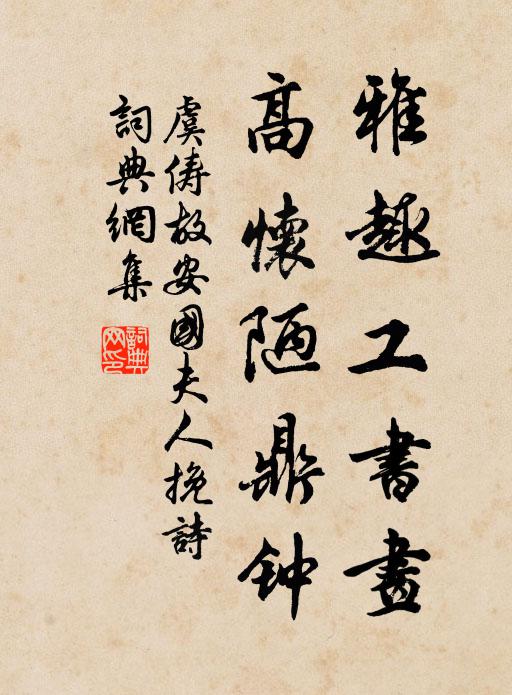 雅趣工書畫
高懷陋鼎钟
虞俦故安國夫人挽詩
詞典網集
詞典网印